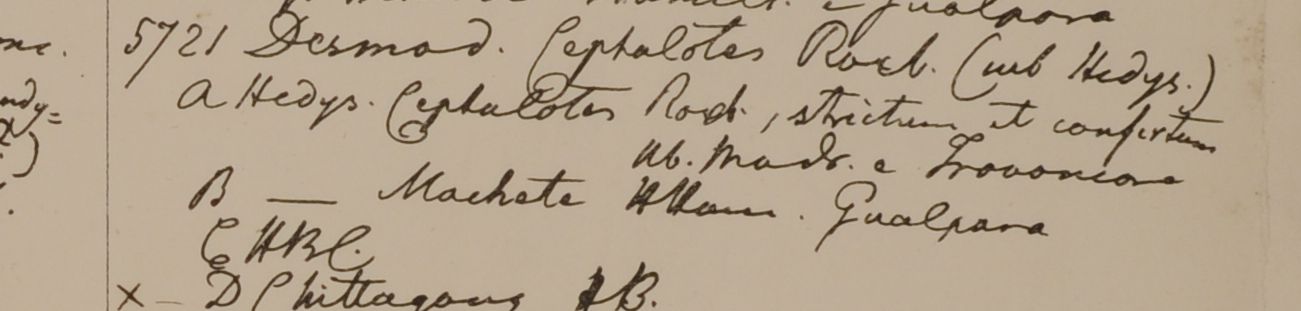 Gualpara
5721 Desmod. Cephalotes Roxb. (sub Hedys.)
A Hedys. Cephalotes Roxb., strictum et confertum
Hb. Madr. e Travancore
B — Machete HHam. Gualpara
C HBC.
x – D Chittagong HB.